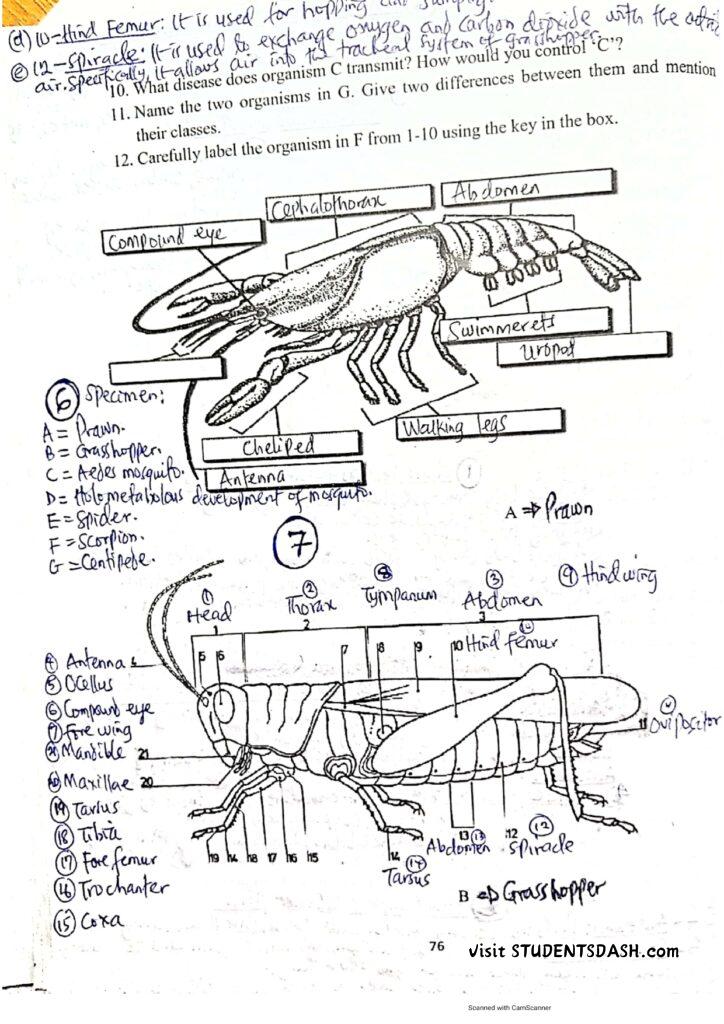 (d) 10-Hind Femur: It is used for hopping and jumping.
(e) 12-Spiracle: It is used to exchange oxygen and carbon dioxide with the
air. Specifically, it allows air into the tracheal system of grasshopper.
10. What disease does organism C transmit? How would you control 'C'?
11. Name the two organisms in G. Give two differences between them and mention
their classes.
12. Carefully label the organism in F from 1-10 using the key in the box.
Cephalothorax
Abdomen
Compound eye
Swimmerets
Uropod
Walking legs
Cheliped
Antenna
6 Specimen:
A = Prawn.
B = Grasshopper.
C = Aedes mosquito.
D = Holometabolous development of mosquito.
E = Spider.
F = Scorpion.
G = Centipede.
1
A ⇒ Prawn
7
1 Head
2 Thorax
8 Tympanum
3 Abdomen
9 Hind wing
1 2 3
10 Hind femur
4 Antenna 4
5 6 7 8 9 10
5 Ocellus
6 Compound eye
7 Fore wing
Mandible 21
Maxillae 20
11 Ovipositor
19 Tarsus
18 Tibia
17 Fore femur
16 Trochanter
15 Coxa
19 14 18 17 16 15
14
14 Tarsus
13 13
Abdomen
12 12
Spiracle
B ⇒ Grasshopper
76
visit STUDENTSDASH.com
Scanned with CamScanner